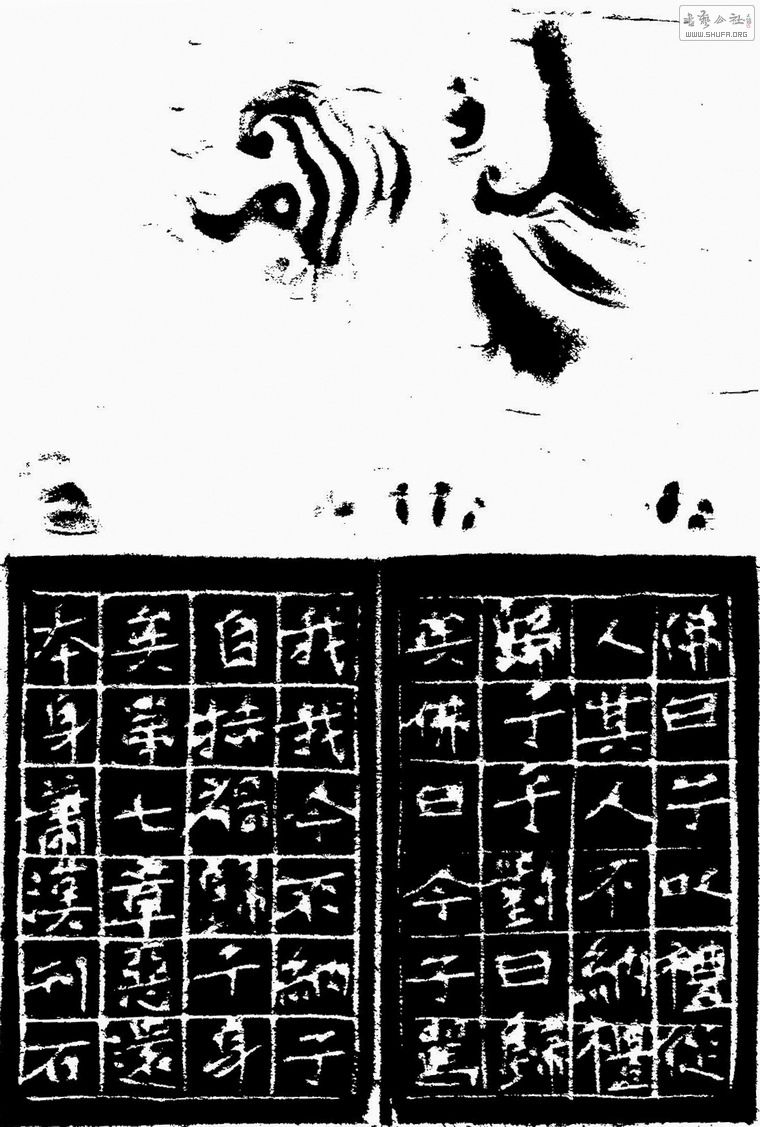 書藝公社
WWW.SHUFA.ORG
佛曰子以禮從
人其人不納禮
歸子乎對曰歸
矣佛曰今子罵
我我今不納子
自持禍歸子身
矣第七章惡還
本身蕭漢刊石